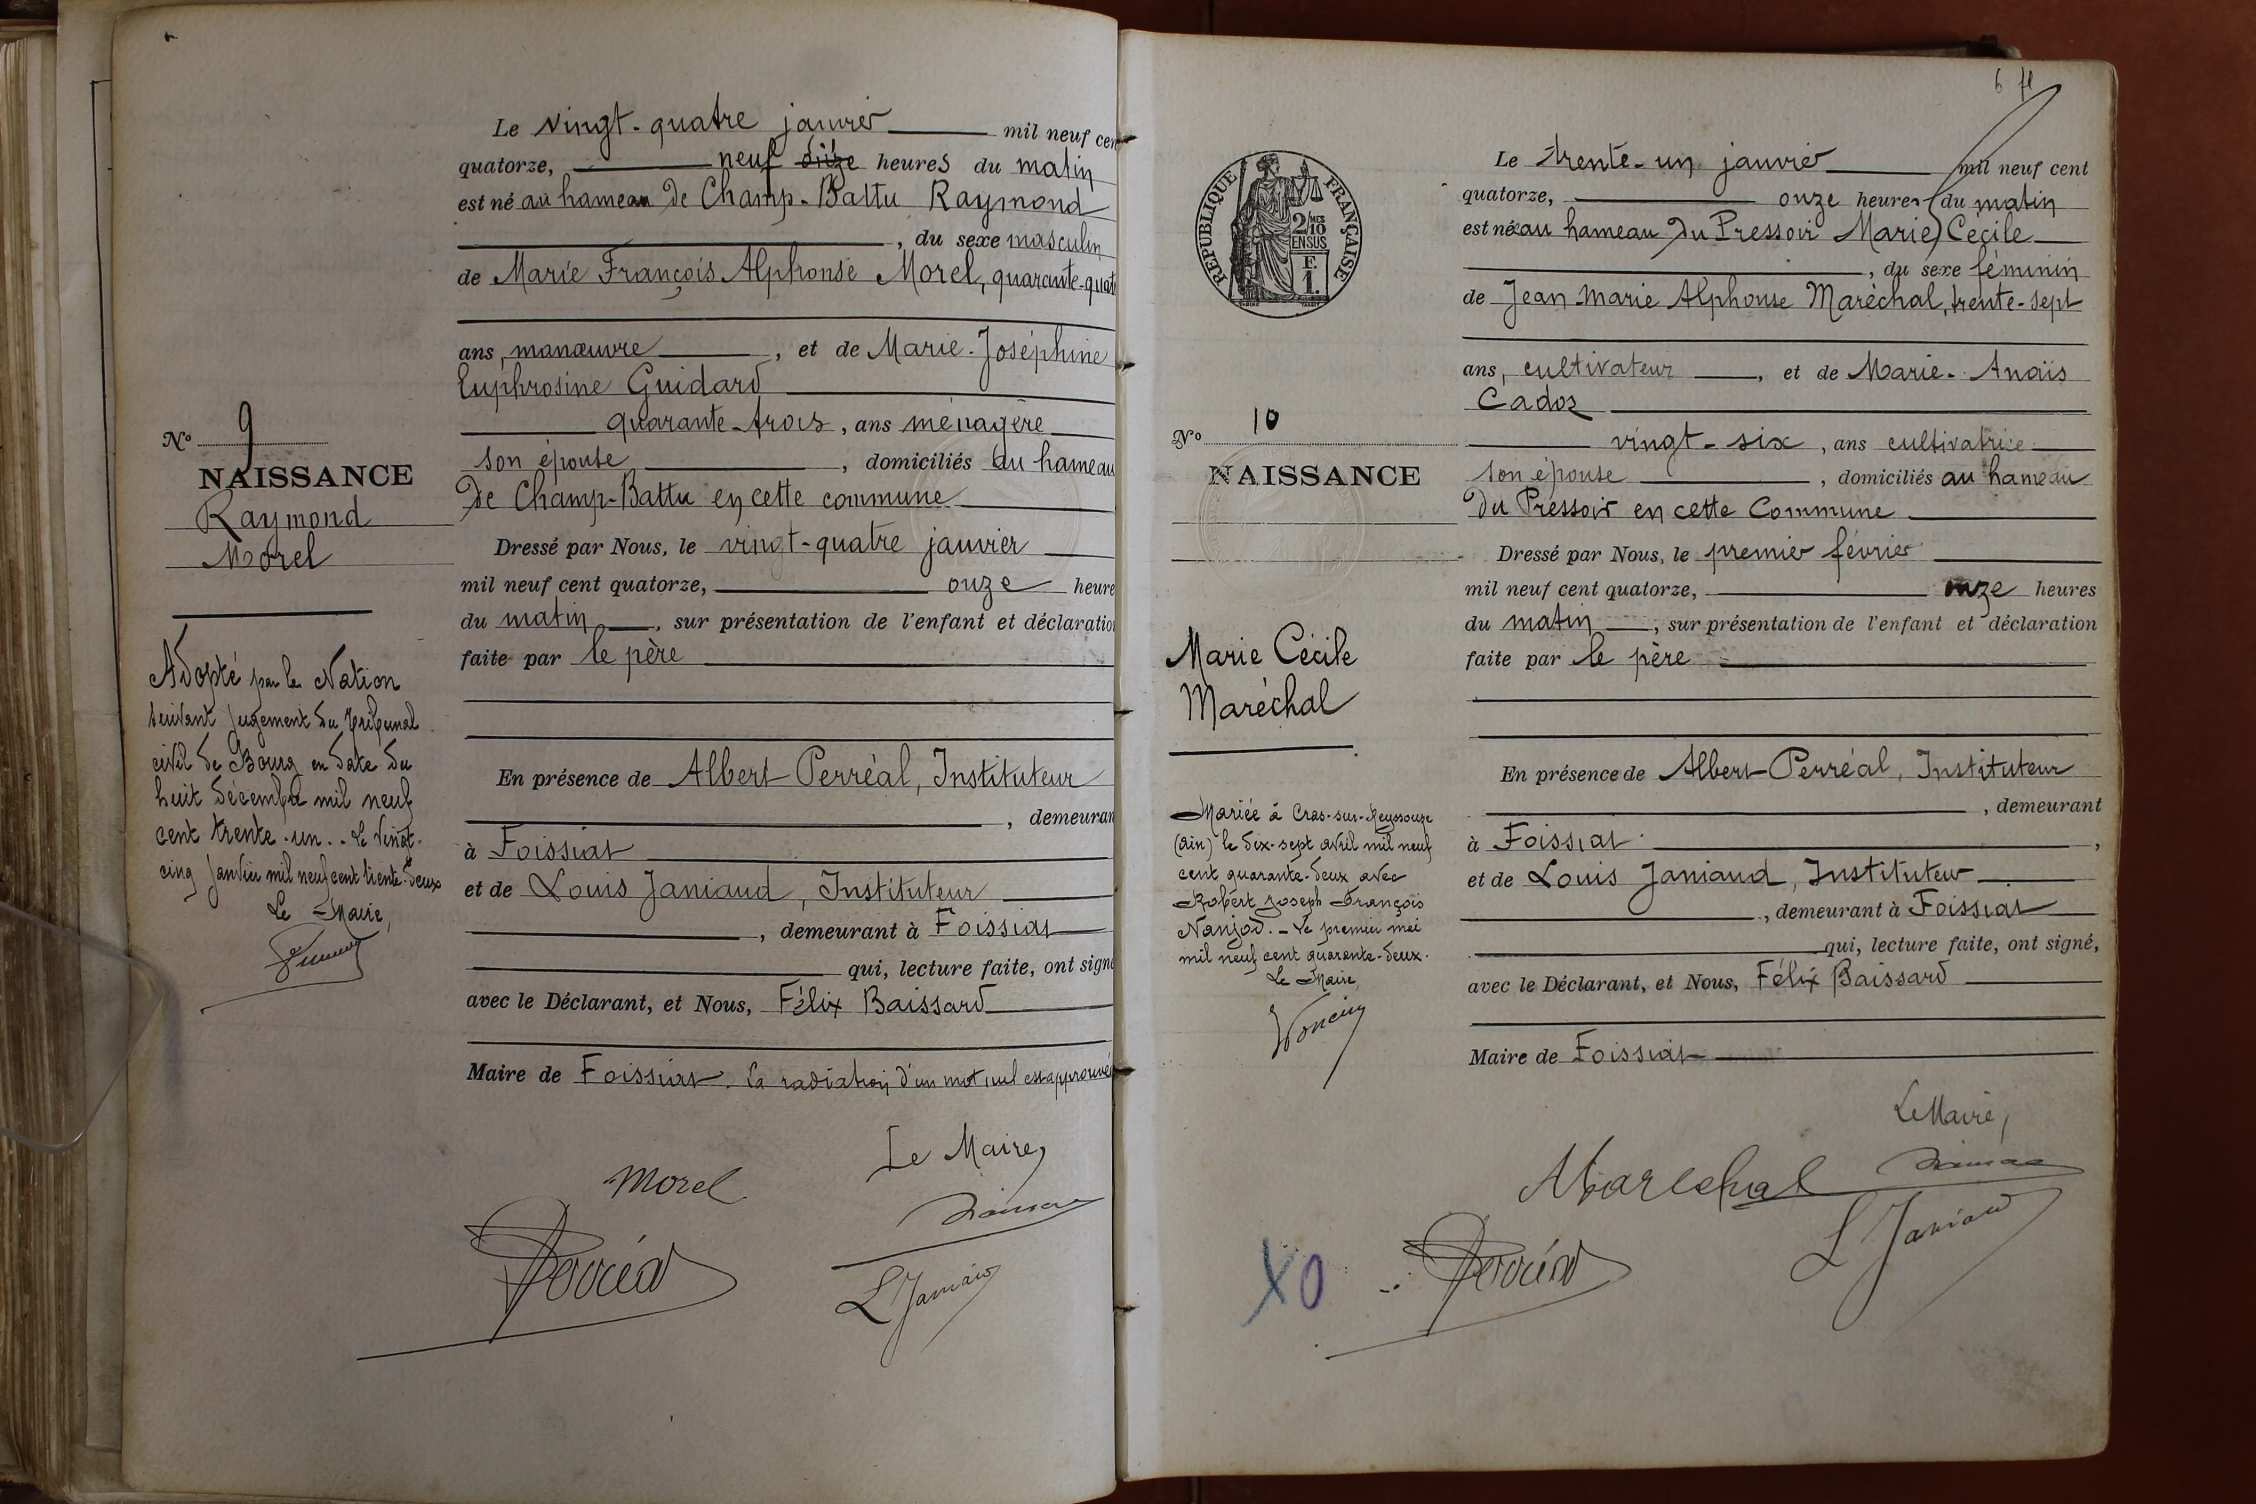 Le vingt-quatre janvier mil neuf cen
quatorze, neuf onze heures du matin
est né au hameau de Champ-Battu Raymond
, du sexe masculin
de Marie François Alphonse Morel, quarante-quat
ans, manœuvre, et de Marie-Joséphine
Euphrosine Guidard
quarante-trois, ans ménagère
son épouse, domiciliés au hameau
de Champ-Battu en cette commune
Dressé par Nous, le vingt-quatre janvier
mil neuf cent quatorze, onze heure
du matin, sur présentation de l'enfant et déclaratio
faite par le père
En présence de Albert Perréal, Instituteur
, demeuran
à Foissiat
et de Louis Janiaud, Instituteur
, demeurant à Foissiat
qui, lecture faite, ont signé
avec le Déclarant, et Nous, Félix Baissard
Maire de Foissiat. La radiation d'un mot nul est approuvée
Le Maire,
Morel
Perréal
L Janiaud
No 9
NAISSANCE
Raymond
Morel
Adopté par la Nation
suivant jugement du tribunal
civil de Bourg en date du
huit décembre mil neuf
cent trente-un. - Le vingt-
cinq janvier mil neuf cent trente-deux
Le Maire,
6
RÉPUBLIQUE FRANÇAISE
2/10 MES
EN SUS
F.
1.
Le trente-un janvier mil neuf cent
quatorze, onze heures du matin
est née au hameau du Pressoir Marie Cécile
, du sexe féminin
de Jean-Marie Alphonse Maréchal, trente-sept
ans, cultivateur, et de Marie-Anaïs
Cadoz
vingt-six, ans cultivatrice
son épouse, domiciliés au hameau
du Pressoir en cette Commune
Dressé par Nous, le premier février
mil neuf cent quatorze, onze heures
du matin, sur présentation de l'enfant et déclaration
faite par le père
En présence de Albert Perréal, Instituteur
, demeurant
à Foissiat,
et de Louis Janiaud, Instituteur
, demeurant à Foissiat
qui, lecture faite, ont signé,
avec le Déclarant, et Nous, Félix Baissard
Maire de Foissiat
Le Maire,
Marechal
Perréal
L Janiaud
No 10
NAISSANCE
Marie Cécile
Maréchal
Mariée à Cras-sur-Reyssouze
(Ain) le dix-sept avril mil neuf
cent quarante-deux avec
Robert Joseph François
Nanjod. - Le premier mai
mil neuf cent quarante-deux.
Le Maire,
XO